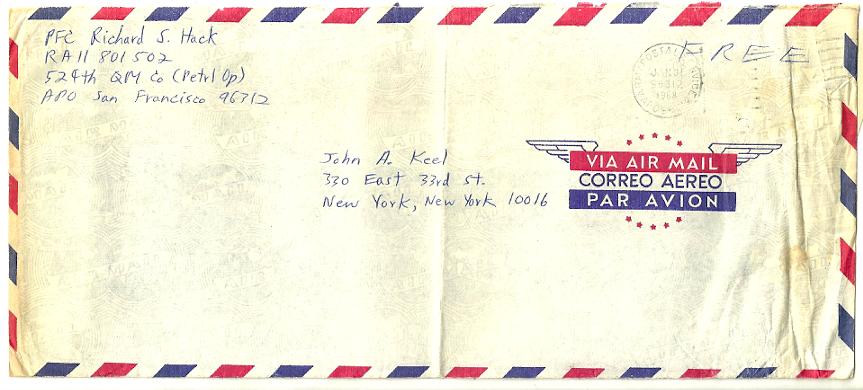 PFC Richard S. Hack
RA11 801502
524th QM Co (Petrl Op)
APO San Francisco 96312
FREE
POSTAL
JAN
96312
1968
John A. Keel
330 East 33rd St.
New York, New York 10016
VIA AIR MAIL
CORREO AEREO
PAR AVION